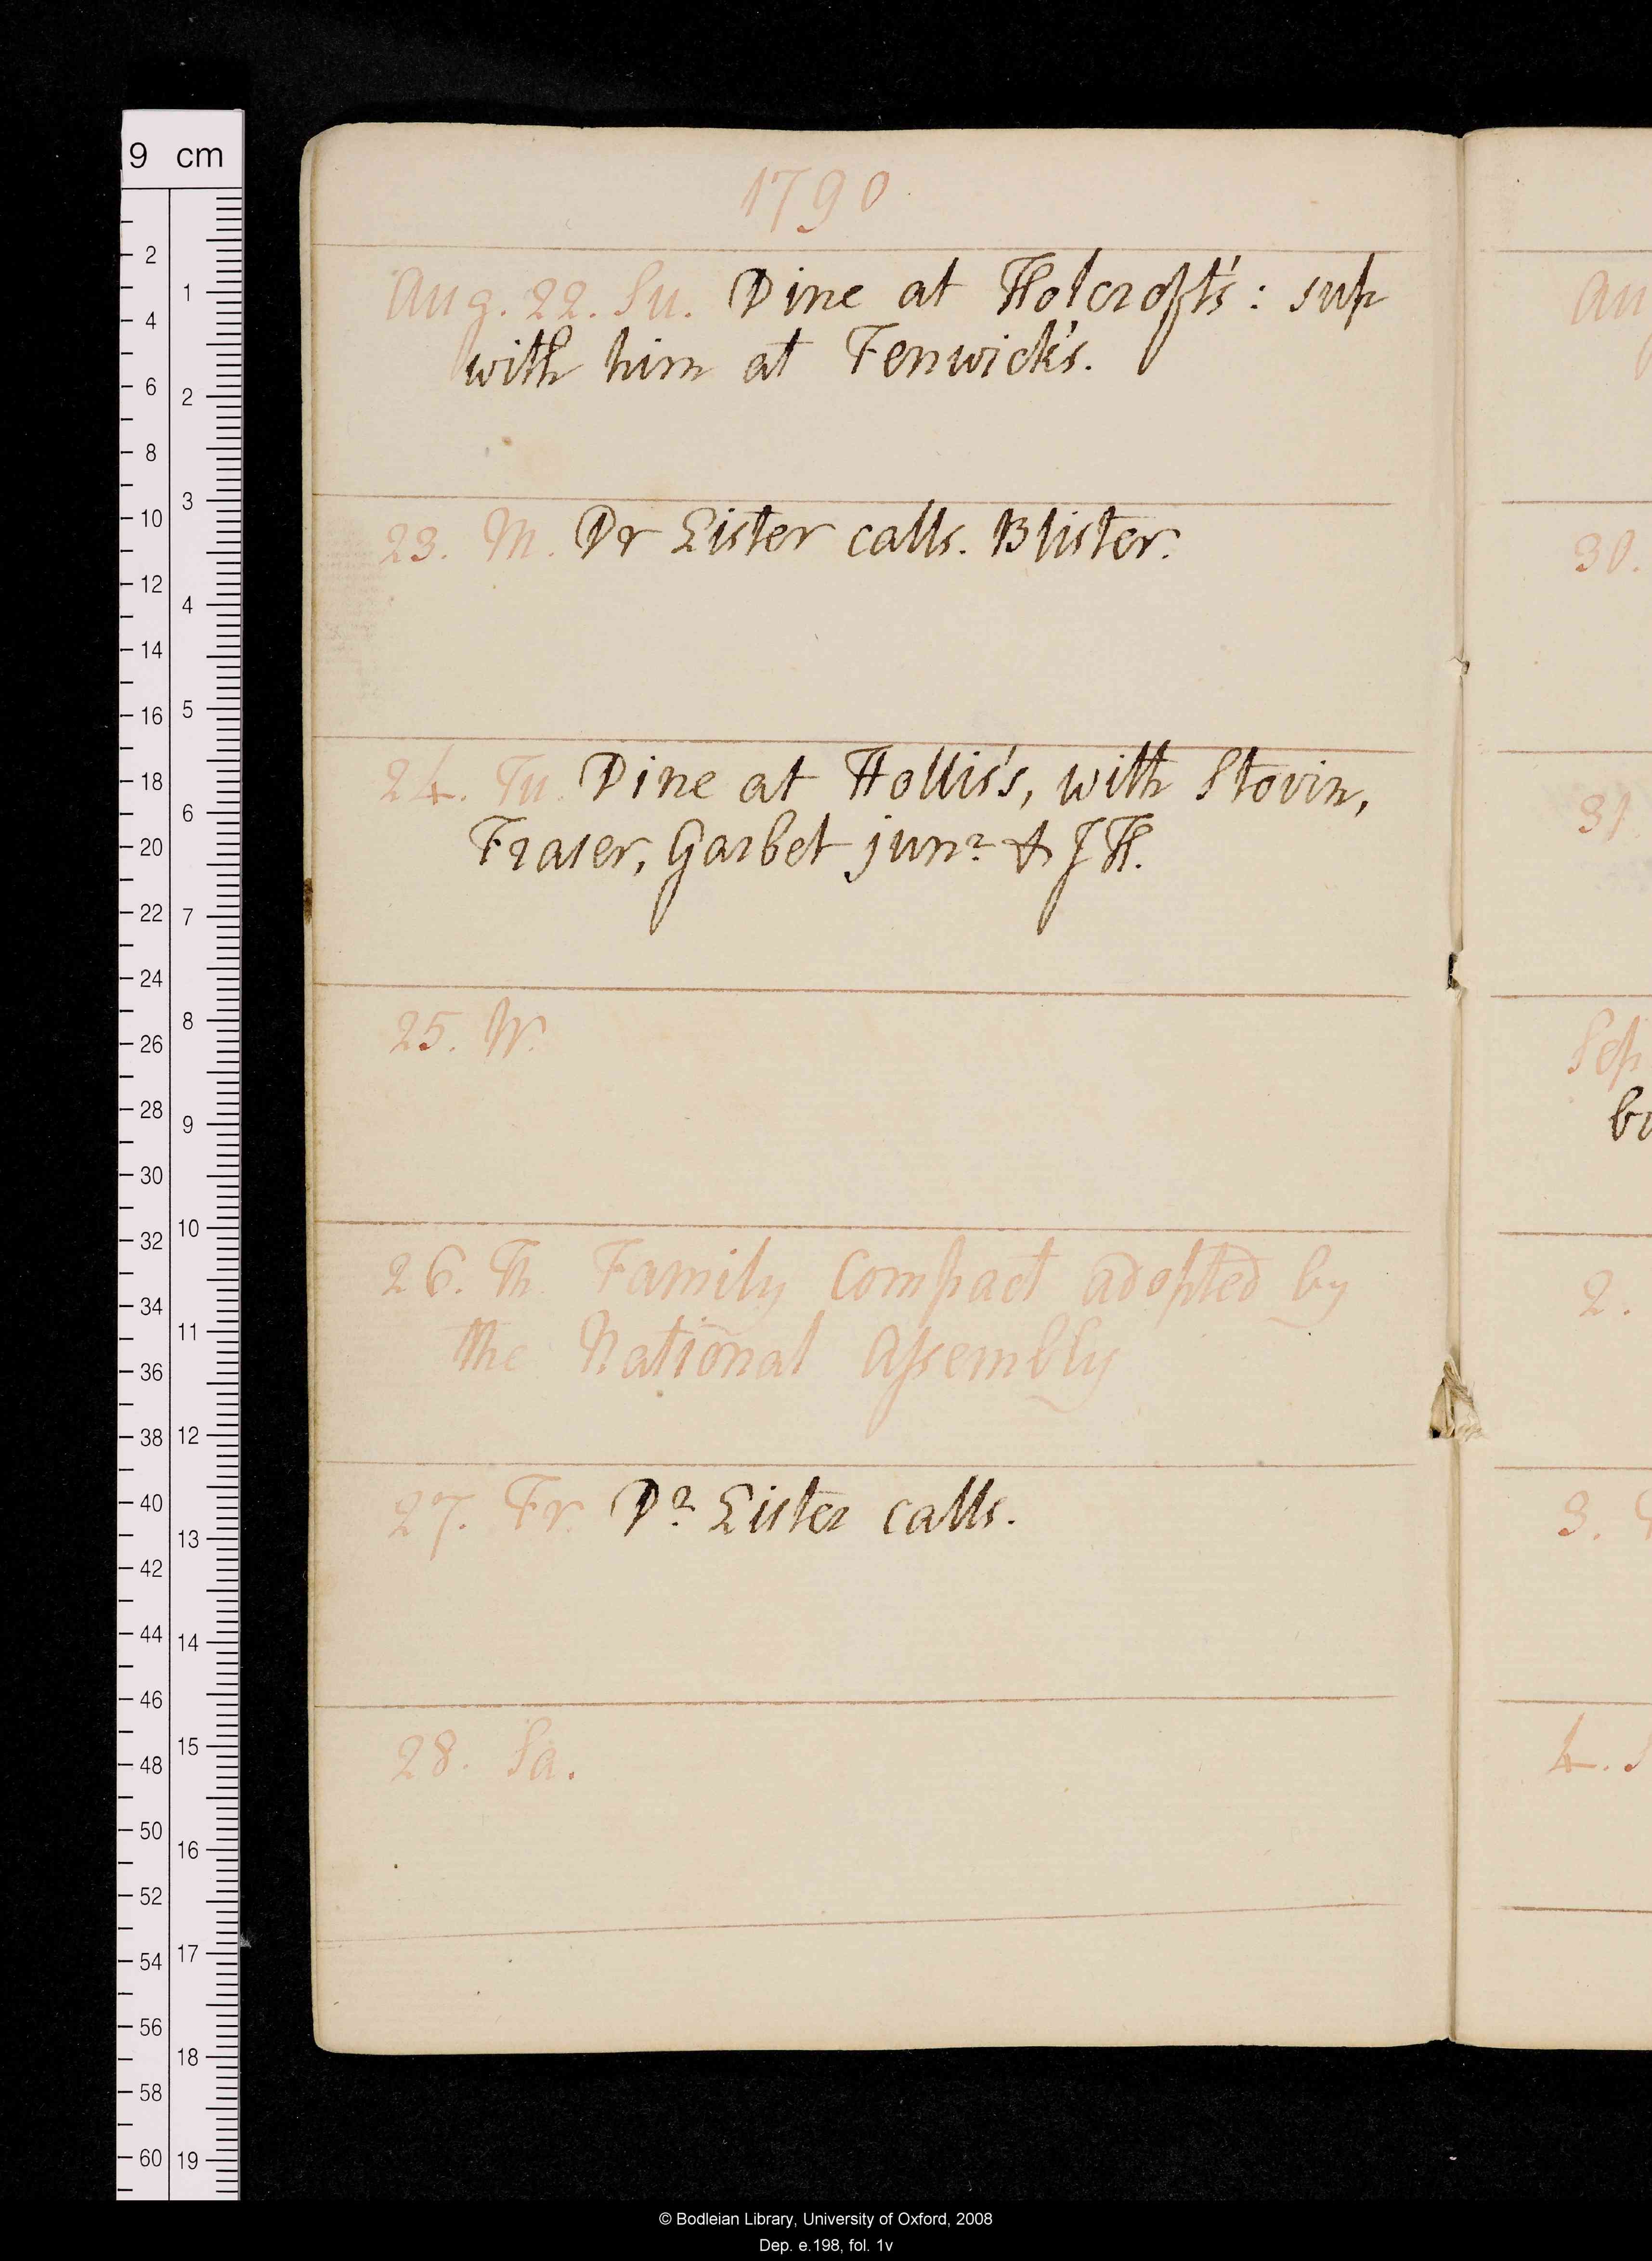 1790
Aug. 22. Su. Dine at Holcroft's: sup
with him at Fenwick's.
23. M. Dr Lister calls. Blister.
24. Tu. Dine at Hollis's, with Stovin,
Fraser, Garbet junr & JH.
25. W.
26. Th. Family Compact adopted by
the National Assembly
27. Fr. Dr Lister calls.
28. Sa.
Au
30.
31
Sep
2.
3.
4. S
9 cm
2
4
6
8
10
12
14
16
18
20
22
24
26
28
30
32
34
36
38
40
42
44
46
48
50
52
54
56
58
60
1
2
3
4
5
6
7
8
9
10
11
12
13
14
15
16
17
18
19
© Bodleian Library, University of Oxford, 2008
Dep. e.198, fol. 1v